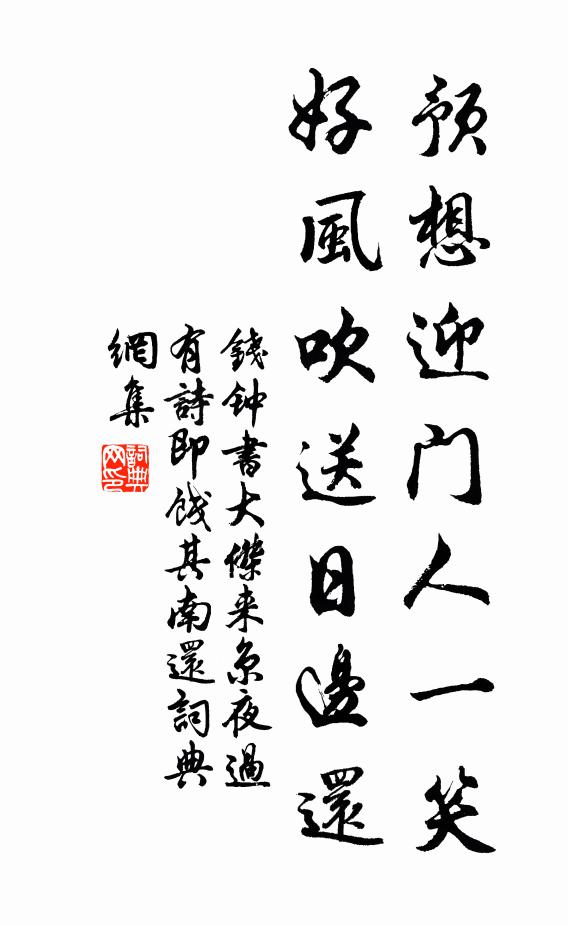 預想迎门人一笑
好風吹送日邊還
錢钟書大傑来京夜過
有詩即餞其南還詞典
網集
詞典
网印